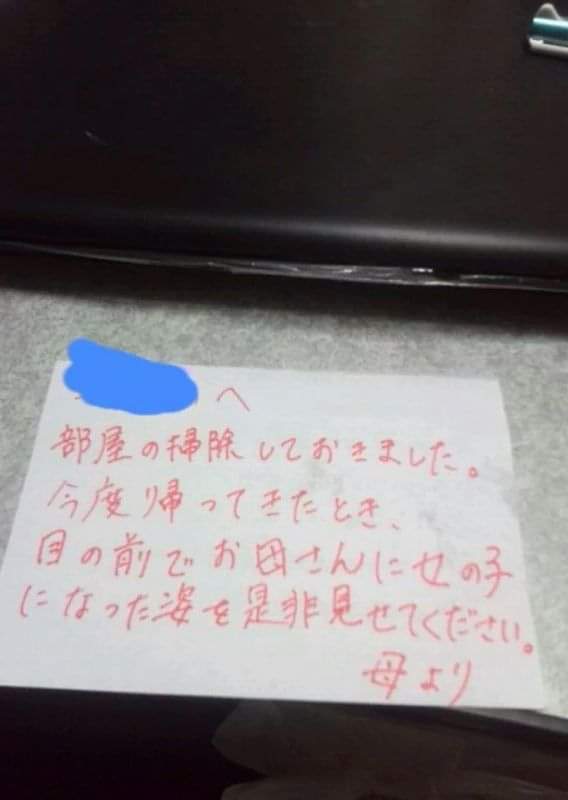 へ
部屋の掃除しておきました。
今度帰ってきたとき、
目の前でお母さんに女の子
になった姿を是非見せてください。
母より